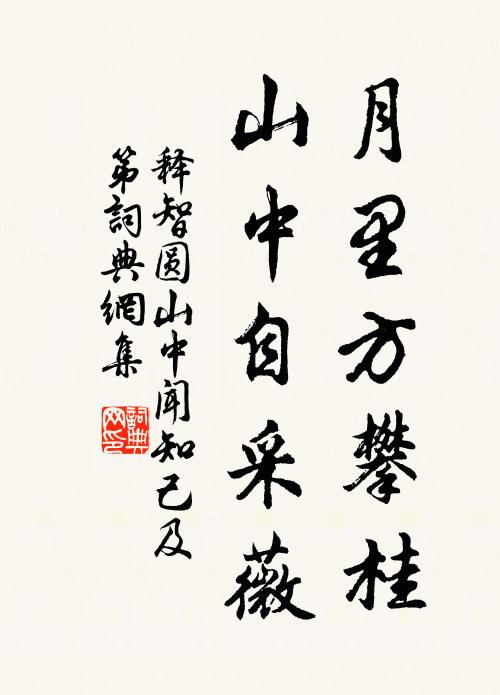 月里方攀桂
山中自采薇
释智圆山中闻知己及
第詞典網集
詞典
网印